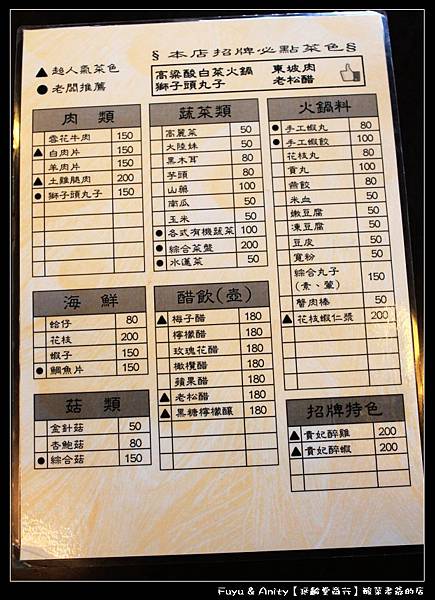 § 本店招牌必點菜色 §
▲ 超人氣菜色
● 老闆推薦
高粱酸白菜火鍋 東坡肉
獅子頭丸子 老松醋
肉 類
雪花牛肉 150
▲ 白肉片 150
羊肉片 150
▲ 土雞腿肉 200
● 獅子頭丸子 150
海 鮮
蛤仔 80
花枝 200
蝦子 150
● 鯛魚片 150
菇 類
金針菇 50
杏鮑菇 80
● 綜合菇 150
蔬菜類
高麗菜 50
大陸妹 50
黑木耳 80
芋頭 80
山藥 100
南瓜 50
玉米 50
● 各式有機蔬菜 100
● 綜合菜盤 200
● 水蓮菜 50
醋飲(壺)
▲ 梅子醋 180
檸檬醋 180
玫瑰花醋 180
橄欖醋 180
蘋果醋 180
▲ 老松醋 180
▲ 黑糖檸檬釀 180
火鍋料
● 手工蝦丸 80
● 手工蝦餃 100
花枝丸 80
貢丸 100
燕餃 80
米血 50
嫩豆腐 50
凍豆腐 50
豆皮 50
寬粉 50
綜合丸子 150
(素、葷)
蟹肉棒 50
▲ 花枝蝦仁漿 200
招牌特色
▲ 貴妃醉雞 200
▲ 貴妃醉蝦 200
Fuyu & Anity【延齡堂商行】酸菜老爺的店